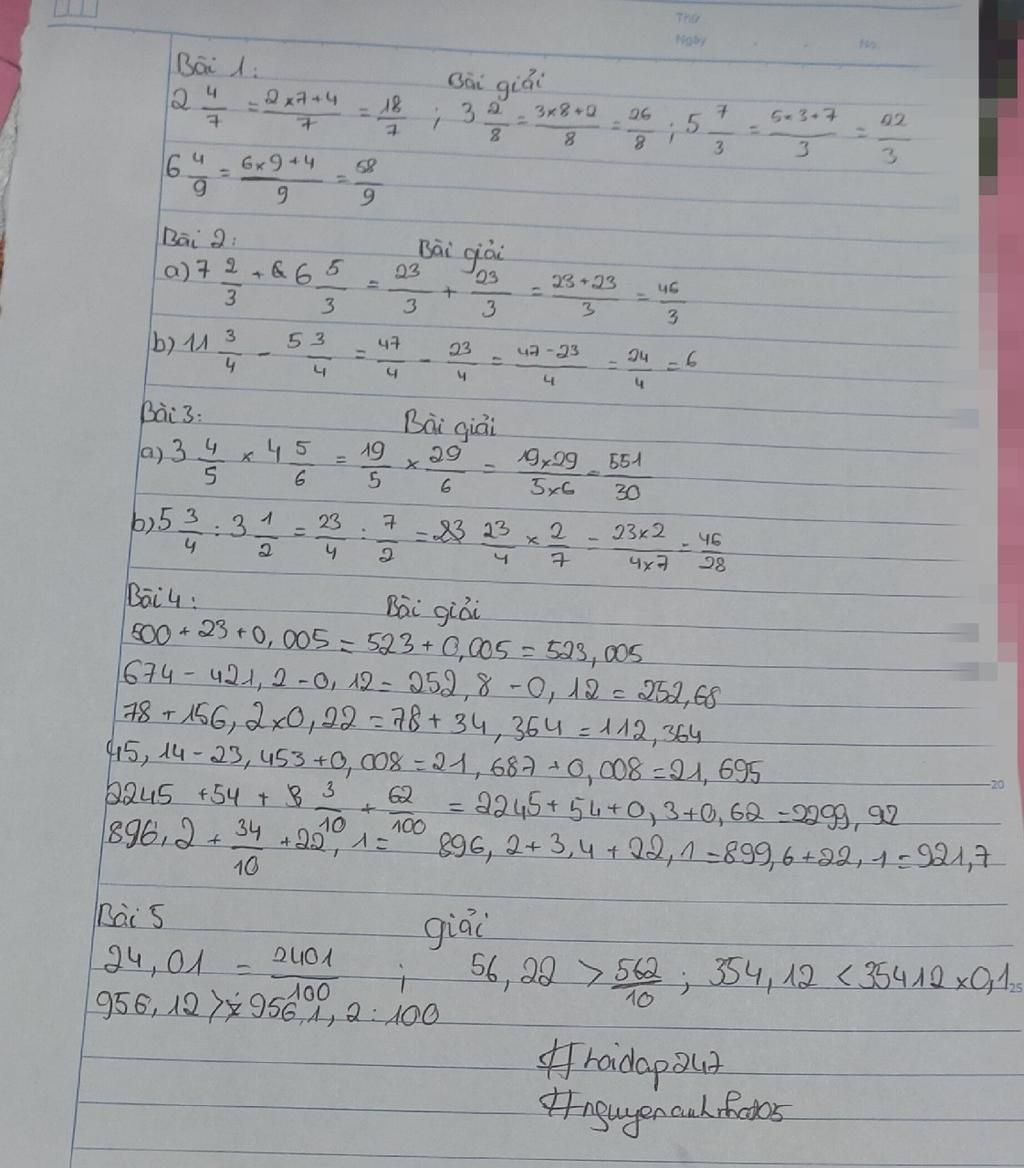 Thứ
Ngày . . No.
Bài 1: Bài giải
2 4/7 = 2x7+4/7 = 18/7 ; 3 2/8 = 3x8+2/8 = 26/8 ; 5 7/3 = 5x3+7/3 = 22/3
6 4/9 = 6x9+4/9 = 58/9
Bài 2: Bài giải
a) 7 2/3 + 6 5/3 = 23/3 + 23/3 = 23+23/3 = 46/3
b) 11 3/4 - 5 3/4 = 47/4 - 23/4 = 47-23/4 = 24/4 = 6
Bài 3: Bài giải
a) 3 4/5 x 4 5/6 = 19/5 x 29/6 = 19x29/5x6 = 551/30
b) 5 3/4 : 3 1/2 = 23/4 : 7/2 = 23/4 x 2/7 = 23x2/4x7 = 46/28
Bài 4: Bài giải
500 + 23 + 0,005 = 523 + 0,005 = 523,005
674 - 421,2 - 0,12 = 252,8 - 0,12 = 252,68
78 + 156,2 x 0,22 = 78 + 34,364 = 112,364
45,14 - 23,453 + 0,008 = 21,687 + 0,008 = 21,695
20
2245 + 54 + 3/10 + 62/100 = 2245 + 54 + 0,3 + 0,62 = 2299,92
896,2 + 34/10 + 22,1 = 896,2 + 3,4 + 22,1 = 899,6 + 22,1 = 921,7
Bài 5 giải
24,01 = 2401/100 ; 56,22 > 562/10 ; 354,12 < 35412 x 0,1
25
956,12 > 956,1,2 : 100
#hoidap247